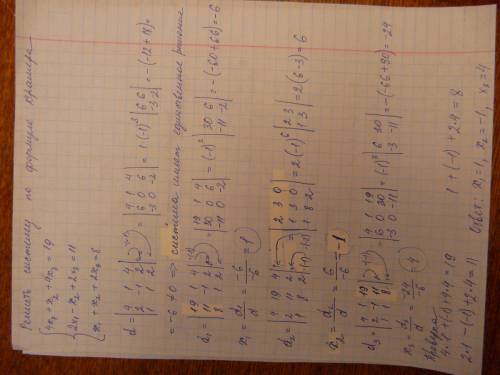 Решить систему по формуле Крамера
4x₁ + x₂ + 4x₃ = 19
2x₁ - x₂ + 2x₃ = 11
x₁ + x₂ + 2x₃ = 8
d = |4 1 4; 2 -1 2; 1 1 2| = |4 1 4; 6 0 6; -3 0 -2| = 1(-1)³ |6 6; -3 -2| = -(-12+18) =
= -6 ≠ 0 ⇒ система имеет единственное решение
d₁ = |19 1 4; 11 -1 2; 8 1 2| = |19 1 4; 30 0 6; -11 0 -2| = (-1)³ |30 6; -11 -2| = -(-60+66) = -6
x₁ = d₁/d = -6/-6 = 1
d₂ = |4 19 4; 2 11 2; 1 8 2| = |2 3 0; 1 3 0; 1 8 2| = 2(-1)⁶ |2 3; 1 3| = 2(6-3) = 6
x₂ = d₂/d = 6/-6 = -1
d₃ = |4 1 19; 2 -1 11; 1 1 8| = |4 1 19; 6 0 30; -3 0 -11| = (-1)³ |6 30; -3 -11| = -(-66+90) = -24
x₃ = d₃/d = -24/-6 = 4
Проверка
4·1 + (-1) + 4·4 = 19
2·1 - (-1) + 2·4 = 11
1 + (-1) + 2·4 = 8
Ответ: x₁ = 1, x₂ = -1, x₃ = 4